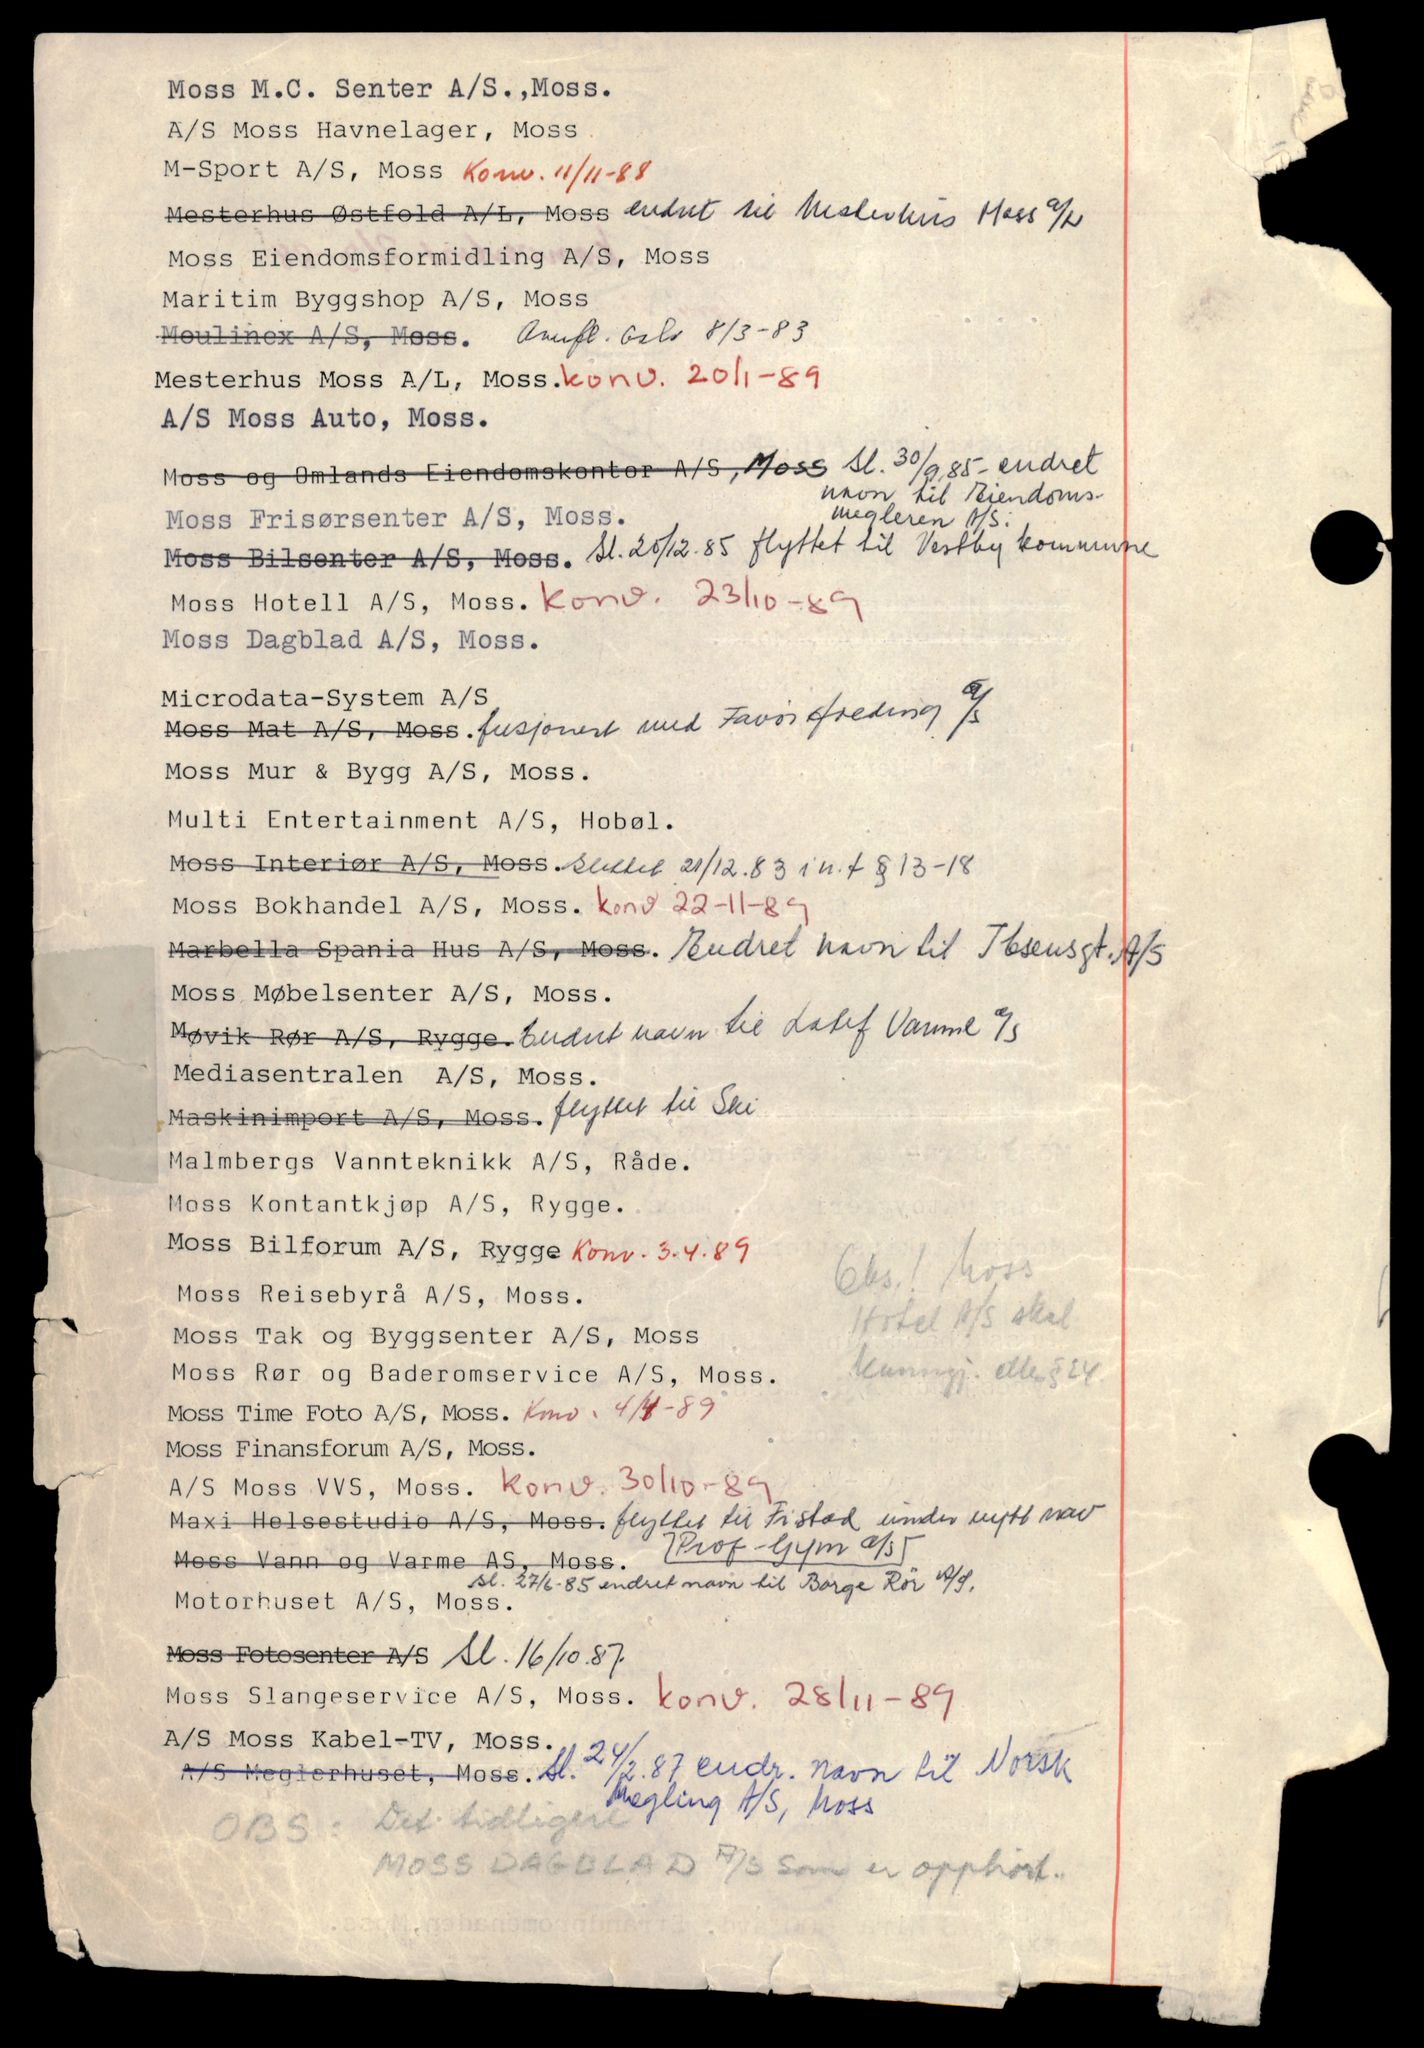 Moss M.C. Senter A/S.,Moss.
A/S Moss Havnelager, Moss
M-Sport A/S, Moss Konv. 11/11-88
Mesterhus Østfold A/L, Moss endret til Mesterhus Moss A/L
Moss Eiendomsformidling A/S, Moss
Maritim Byggshop A/S, Moss
Moulinex A/S, Moss. Overfl. Oslo 8/3-83
Mesterhus Moss A/L, Moss. konv. 20/1-89
A/S Moss Auto, Moss.
Moss og Omlands Eiendomskontor A/S, Moss Sl. 30/9.85 - endret
navn til Eiendoms-
megleren A/S.
Moss Frisørsenter A/S, Moss.
Moss Bilsenter A/S, Moss. Sl. 20/12.85 flyttet til Vestby kommune
Moss Hotell A/S, Moss. konv. 23/10-89
Moss Dagblad A/S, Moss.
Microdata-System A/S
Moss Mat A/S, Moss. fusjonert med Favør A/S
Moss Mur & Bygg A/S, Moss.
Multi Entertainment A/S, Hobøl.
Moss Interiør A/S, Moss. slettet 21/12.83 i h.t § 13-18
Moss Bokhandel A/S, Moss. konv 22-11-89
Marbella Spania Hus A/S, Moss. Endret navn til Ibsensgt. A/S
Moss Møbelsenter A/S, Moss.
Møvik Rør A/S, Rygge. Endret navn til Varme A/S
Mediasentralen A/S, Moss.
Maskinimport A/S, Moss. flyttet til Ski
Malmbergs Vannteknikk A/S, Råde.
Moss Kontantkjøp A/S, Rygge.
Moss Bilforum A/S, Rygge Konv. 3.4.89
Obs.! Moss
Moss Reisebyrå A/S, Moss.
Hotel A/S skal
Moss Tak og Byggsenter A/S, Moss
Moss Rør og Baderomservice A/S, Moss.
kunngj. etter § 24.
Moss Time Foto A/S, Moss. Konv. 4/4-89
Moss Finansforum A/S, Moss.
A/S Moss VVS, Moss. konv. 30/10-89
Maxi Helsestudio A/S, Moss. flyttet til Fr.stad under nytt nav
Prof-Gym A/S
Moss Vann og Varme AS, Moss.
Sl. 27/6-85 endret navn til Borge Rör A/S.
Motorhuset A/S, Moss.
Moss Fotosenter A/S Sl. 16/10.87.
Moss Slangeservice A/S, Moss. konv. 28/11-89
A/S Moss Kabel-TV, Moss.
A/S Meglerhuset, Moss. Sl. 24/2.87 endr. navn til Norsk
Megling A/S, Moss
OBS: Det tidligere
MOSS DAGBLAD A/S som er opphørt.